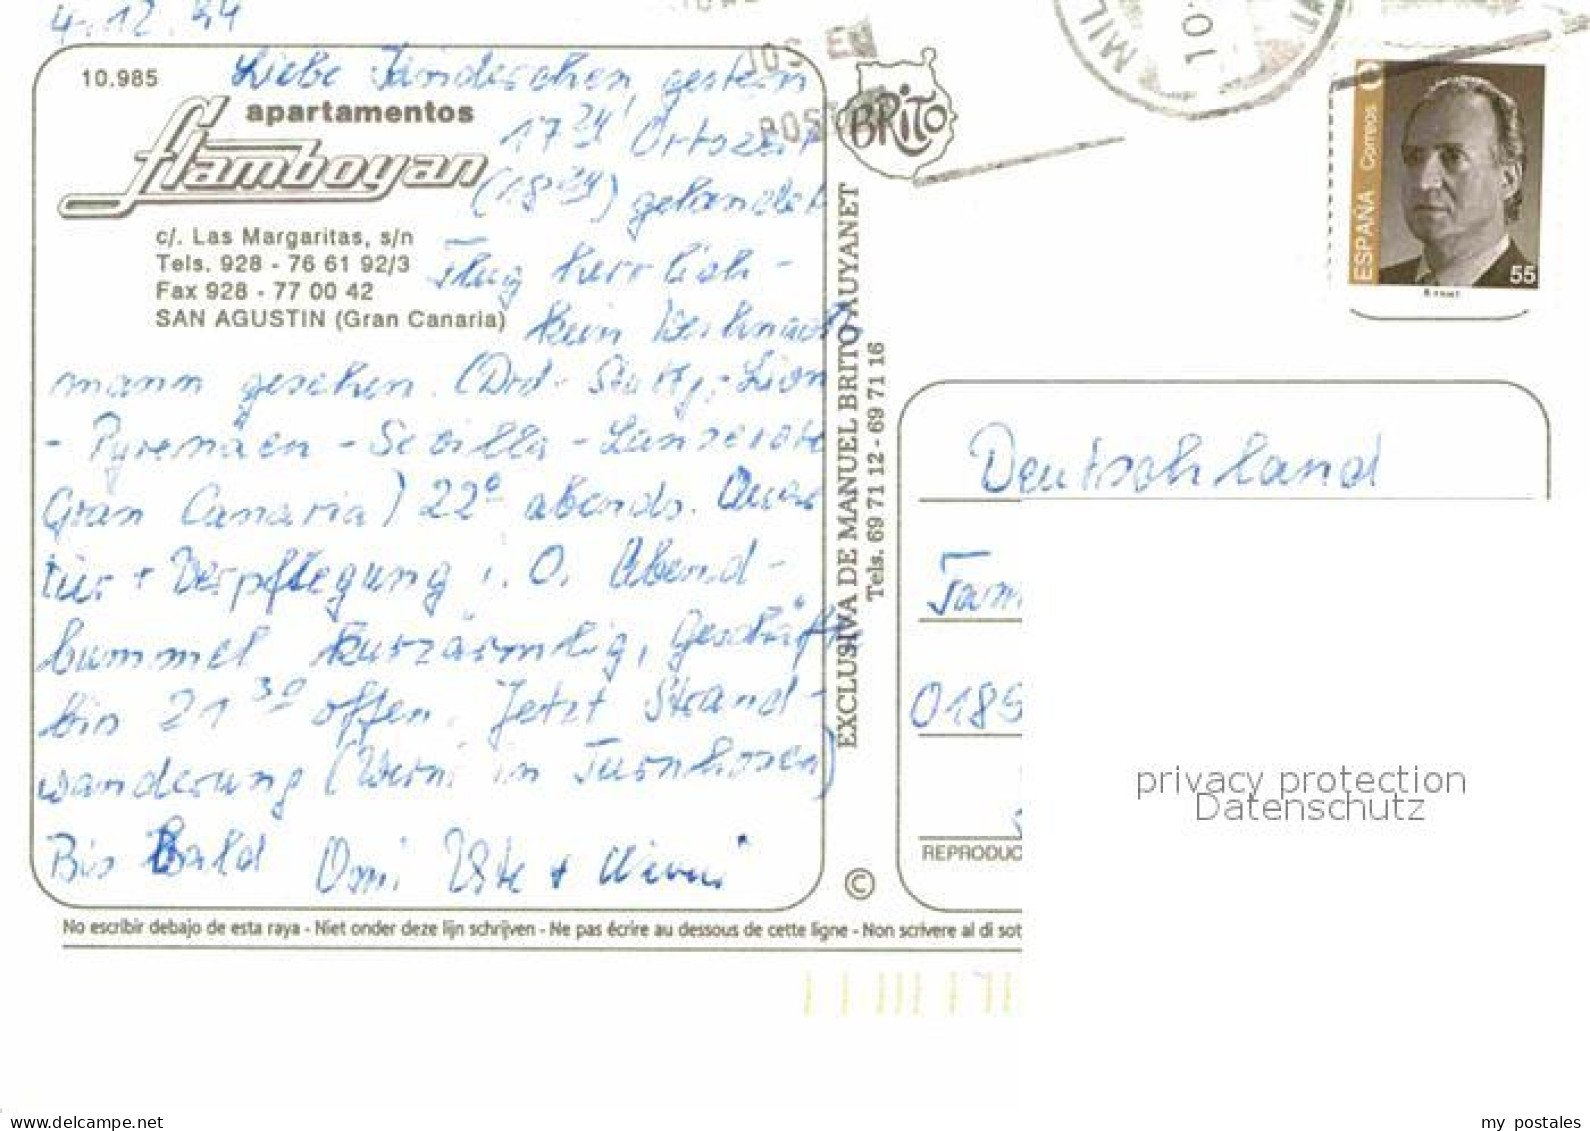 4.12.94
10.985
Liebe Kinderchen, gestern
apartamentos
flamboyan
17 24' Ortszeit
(18 24) gelandet
c/. Las Margaritas, s/n
Tels. 928 - 76 61 92/3
Fax 928 - 77 00 42
SAN AGUSTIN (Gran Canaria)
Flug herrlich -
kein Weihnachts
mann gesehen. (Drd - Stuttg. - Lion
- Pyrenäen - Sevilla - Lanzerote
Gran Canaria) 22° abends. Quar
tier + Verpflegung i. O. Abend-
bummel kurzärmlig, Geschäfte
bis 21 30 offen. Jetzt Strand-
wanderung (Werni in Turnhosen)
Bis Bald Omi Ute + Werni
No escribir debajo de esta raya - Niet onder deze lijn schrijven - Ne pas écrire au dessous de cette ligne - Non scrivere al di sot
BRITO
EXCLUSIVA DE MANUEL BRITO AUYANET
Tels. 69 71 12 - 69 71 16
©
ESPAÑA Correos
55
Deutschland
Fam
0189
REPRODUC
privacy protection
Datenschutz
www.delcampe.net
my postales